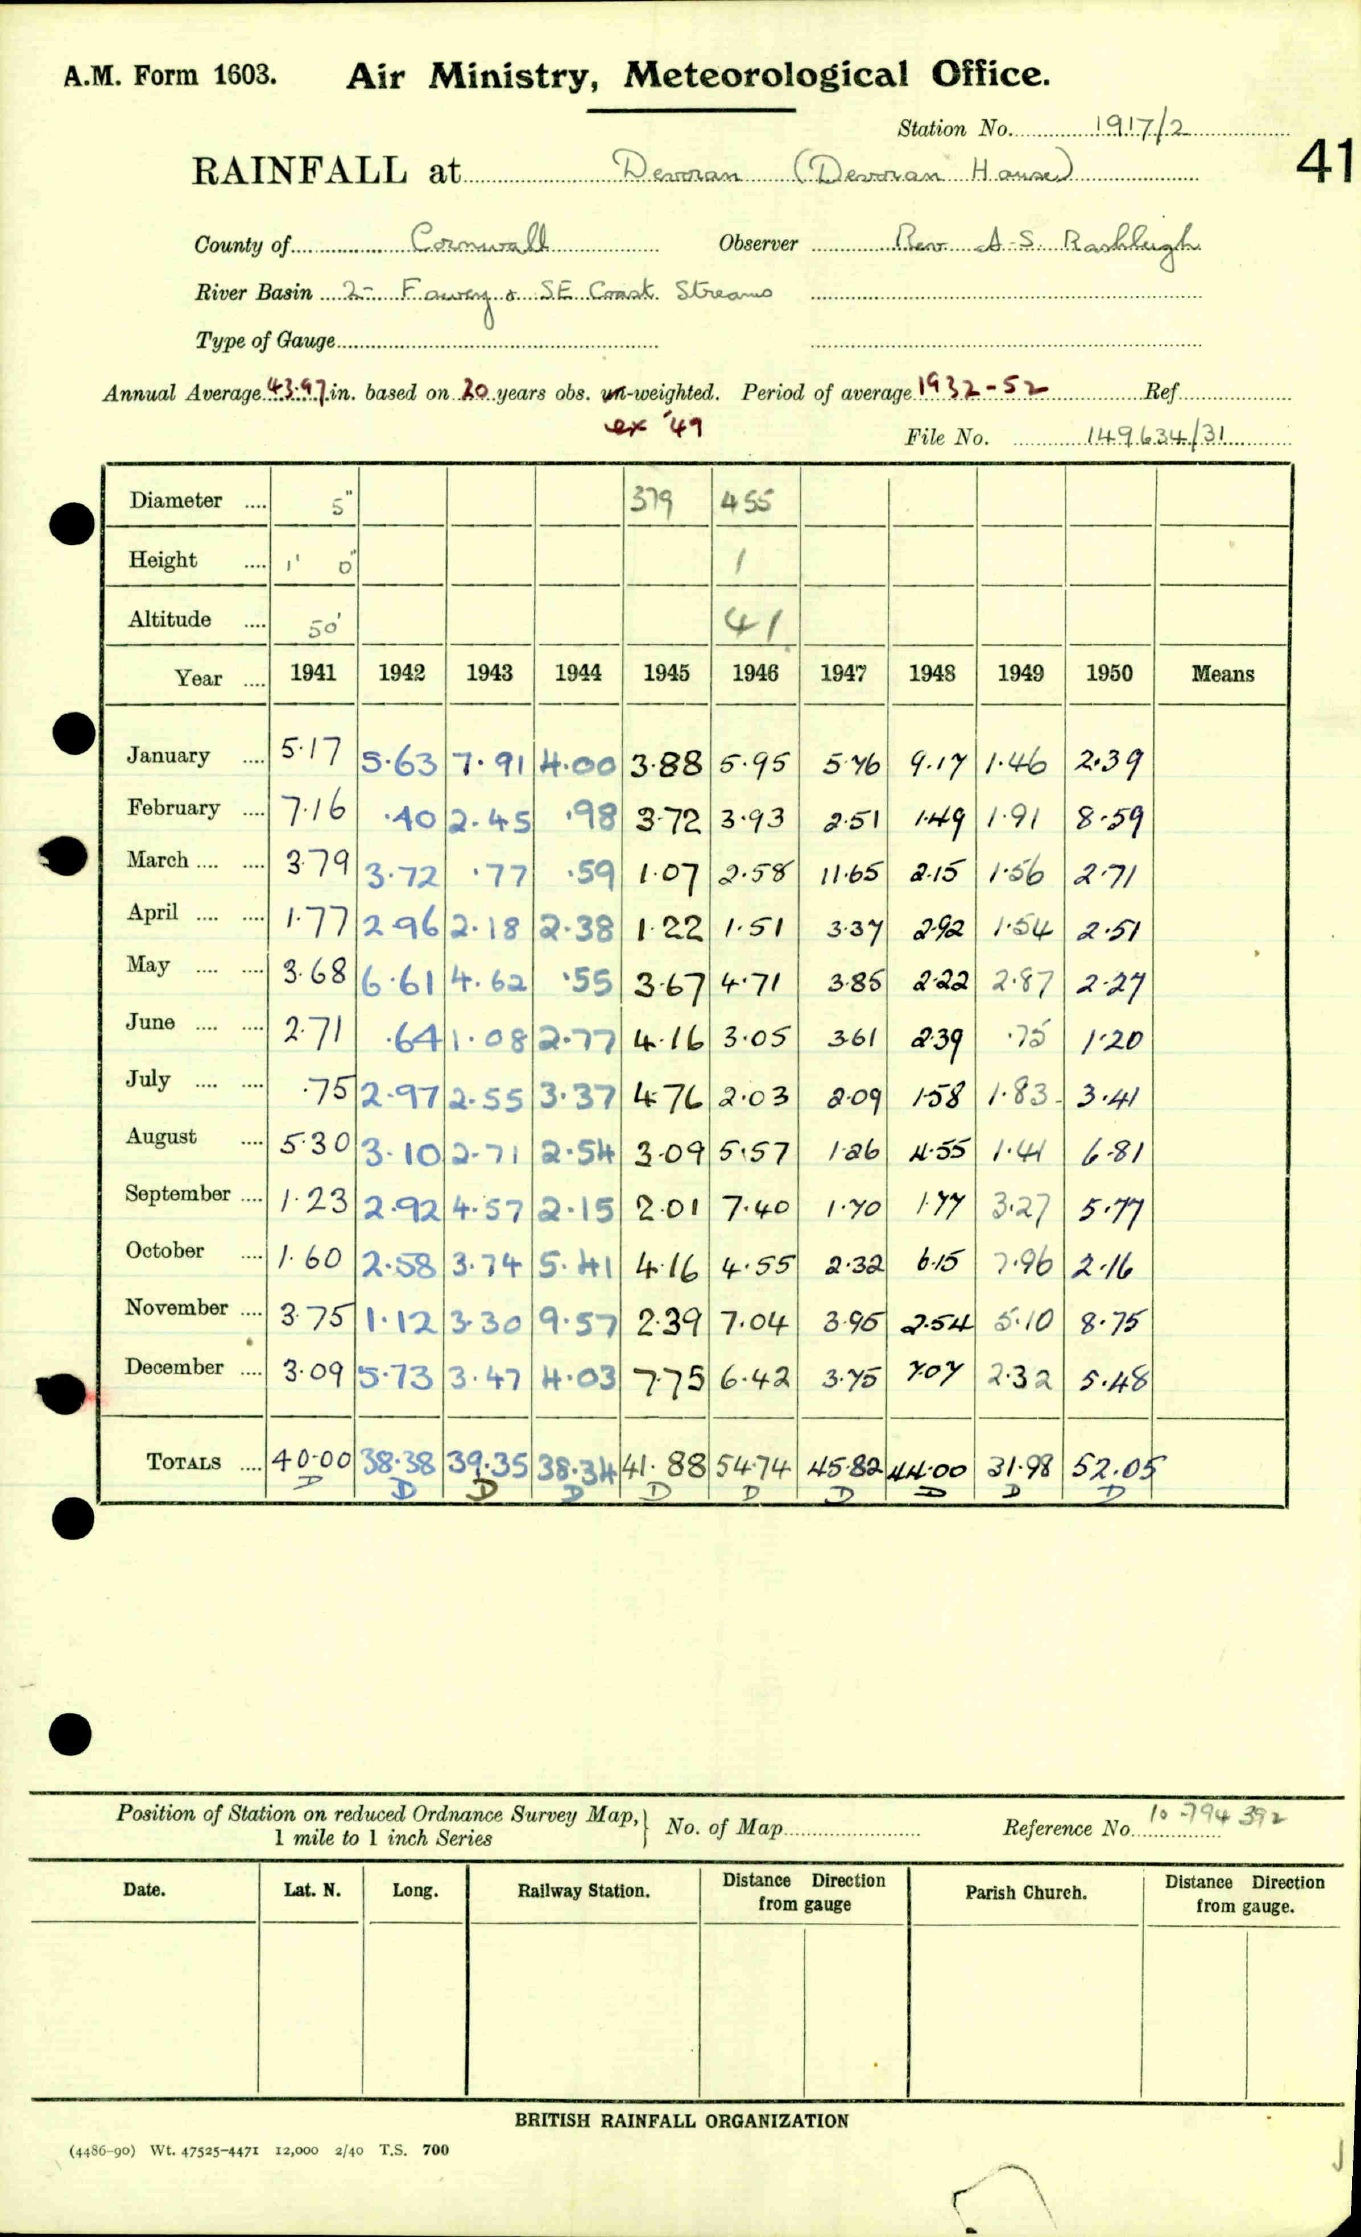 A.M. Form 1603. Air Ministry, Meteorological Office.
Station No. 1917/2
41
RAINFALL at Devoran (Devoran House)
County of Cornwall Observer Rev. A.S. Rashleigh
River Basin 2- Fowey & SE Coast Streams
Type of Gauge
Annual Average 43.97 in. based on 20 years obs. un-weighted. Period of average 1932-52 Ref
ex '49
File No. 149634/31
Diameter .... 5" 379 455
Height .... 1' 0" 1
Altitude .... 50' 41
Year .... 1941 1942 1943 1944 1945 1946 1947 1948 1949 1950 Means
January .... 5.17 5.63 7.91 4.00 3.88 5.95 5.76 9.17 1.46 2.39
February .... 7.16 .40 2.45 .98 3.72 3.93 2.51 1.49 1.91 8.59
March .... .... 3.79 3.72 .77 .59 1.07 2.58 11.65 2.15 1.56 2.71
April .... .... 1.77 2.96 2.18 2.38 1.22 1.51 3.37 2.92 1.54 2.51
May .... .... 3.68 6.61 4.62 .55 3.67 4.71 3.85 2.22 2.87 2.27
June .... .... 2.71 .64 1.08 2.77 4.16 3.05 3.61 2.39 .75 1.20
July .... .... .75 2.97 2.55 3.37 4.76 2.03 2.09 1.58 1.83 3.41
August .... 5.30 3.10 2.71 2.54 3.09 5.57 1.26 4.55 1.41 6.81
September .... 1.23 2.92 4.57 2.15 2.01 7.40 1.70 1.77 3.27 5.77
October .... 1.60 2.58 3.74 5.41 4.16 4.55 2.32 6.15 7.96 2.16
November .... 3.75 1.12 3.30 9.57 2.39 7.04 3.95 2.54 5.10 8.75
December .... 3.09 5.73 3.47 4.03 7.75 6.42 3.75 7.07 2.32 5.48
TOTALS .... 40.00 38.38 39.35 38.34 41.88 54.74 45.82 44.00 31.98 52.05
D D D D D D D D D D
Position of Station on reduced Ordnance Survey Map, 1 mile to 1 inch Series } No. of Map Reference No. 10-794 392
Date. Lat. N. Long. Railway Station. Distance Direction from gauge Parish Church. Distance Direction from gauge.
BRITISH RAINFALL ORGANIZATION
(4486-90) Wt. 47525-4471 12,000 2/40 T.S. 700